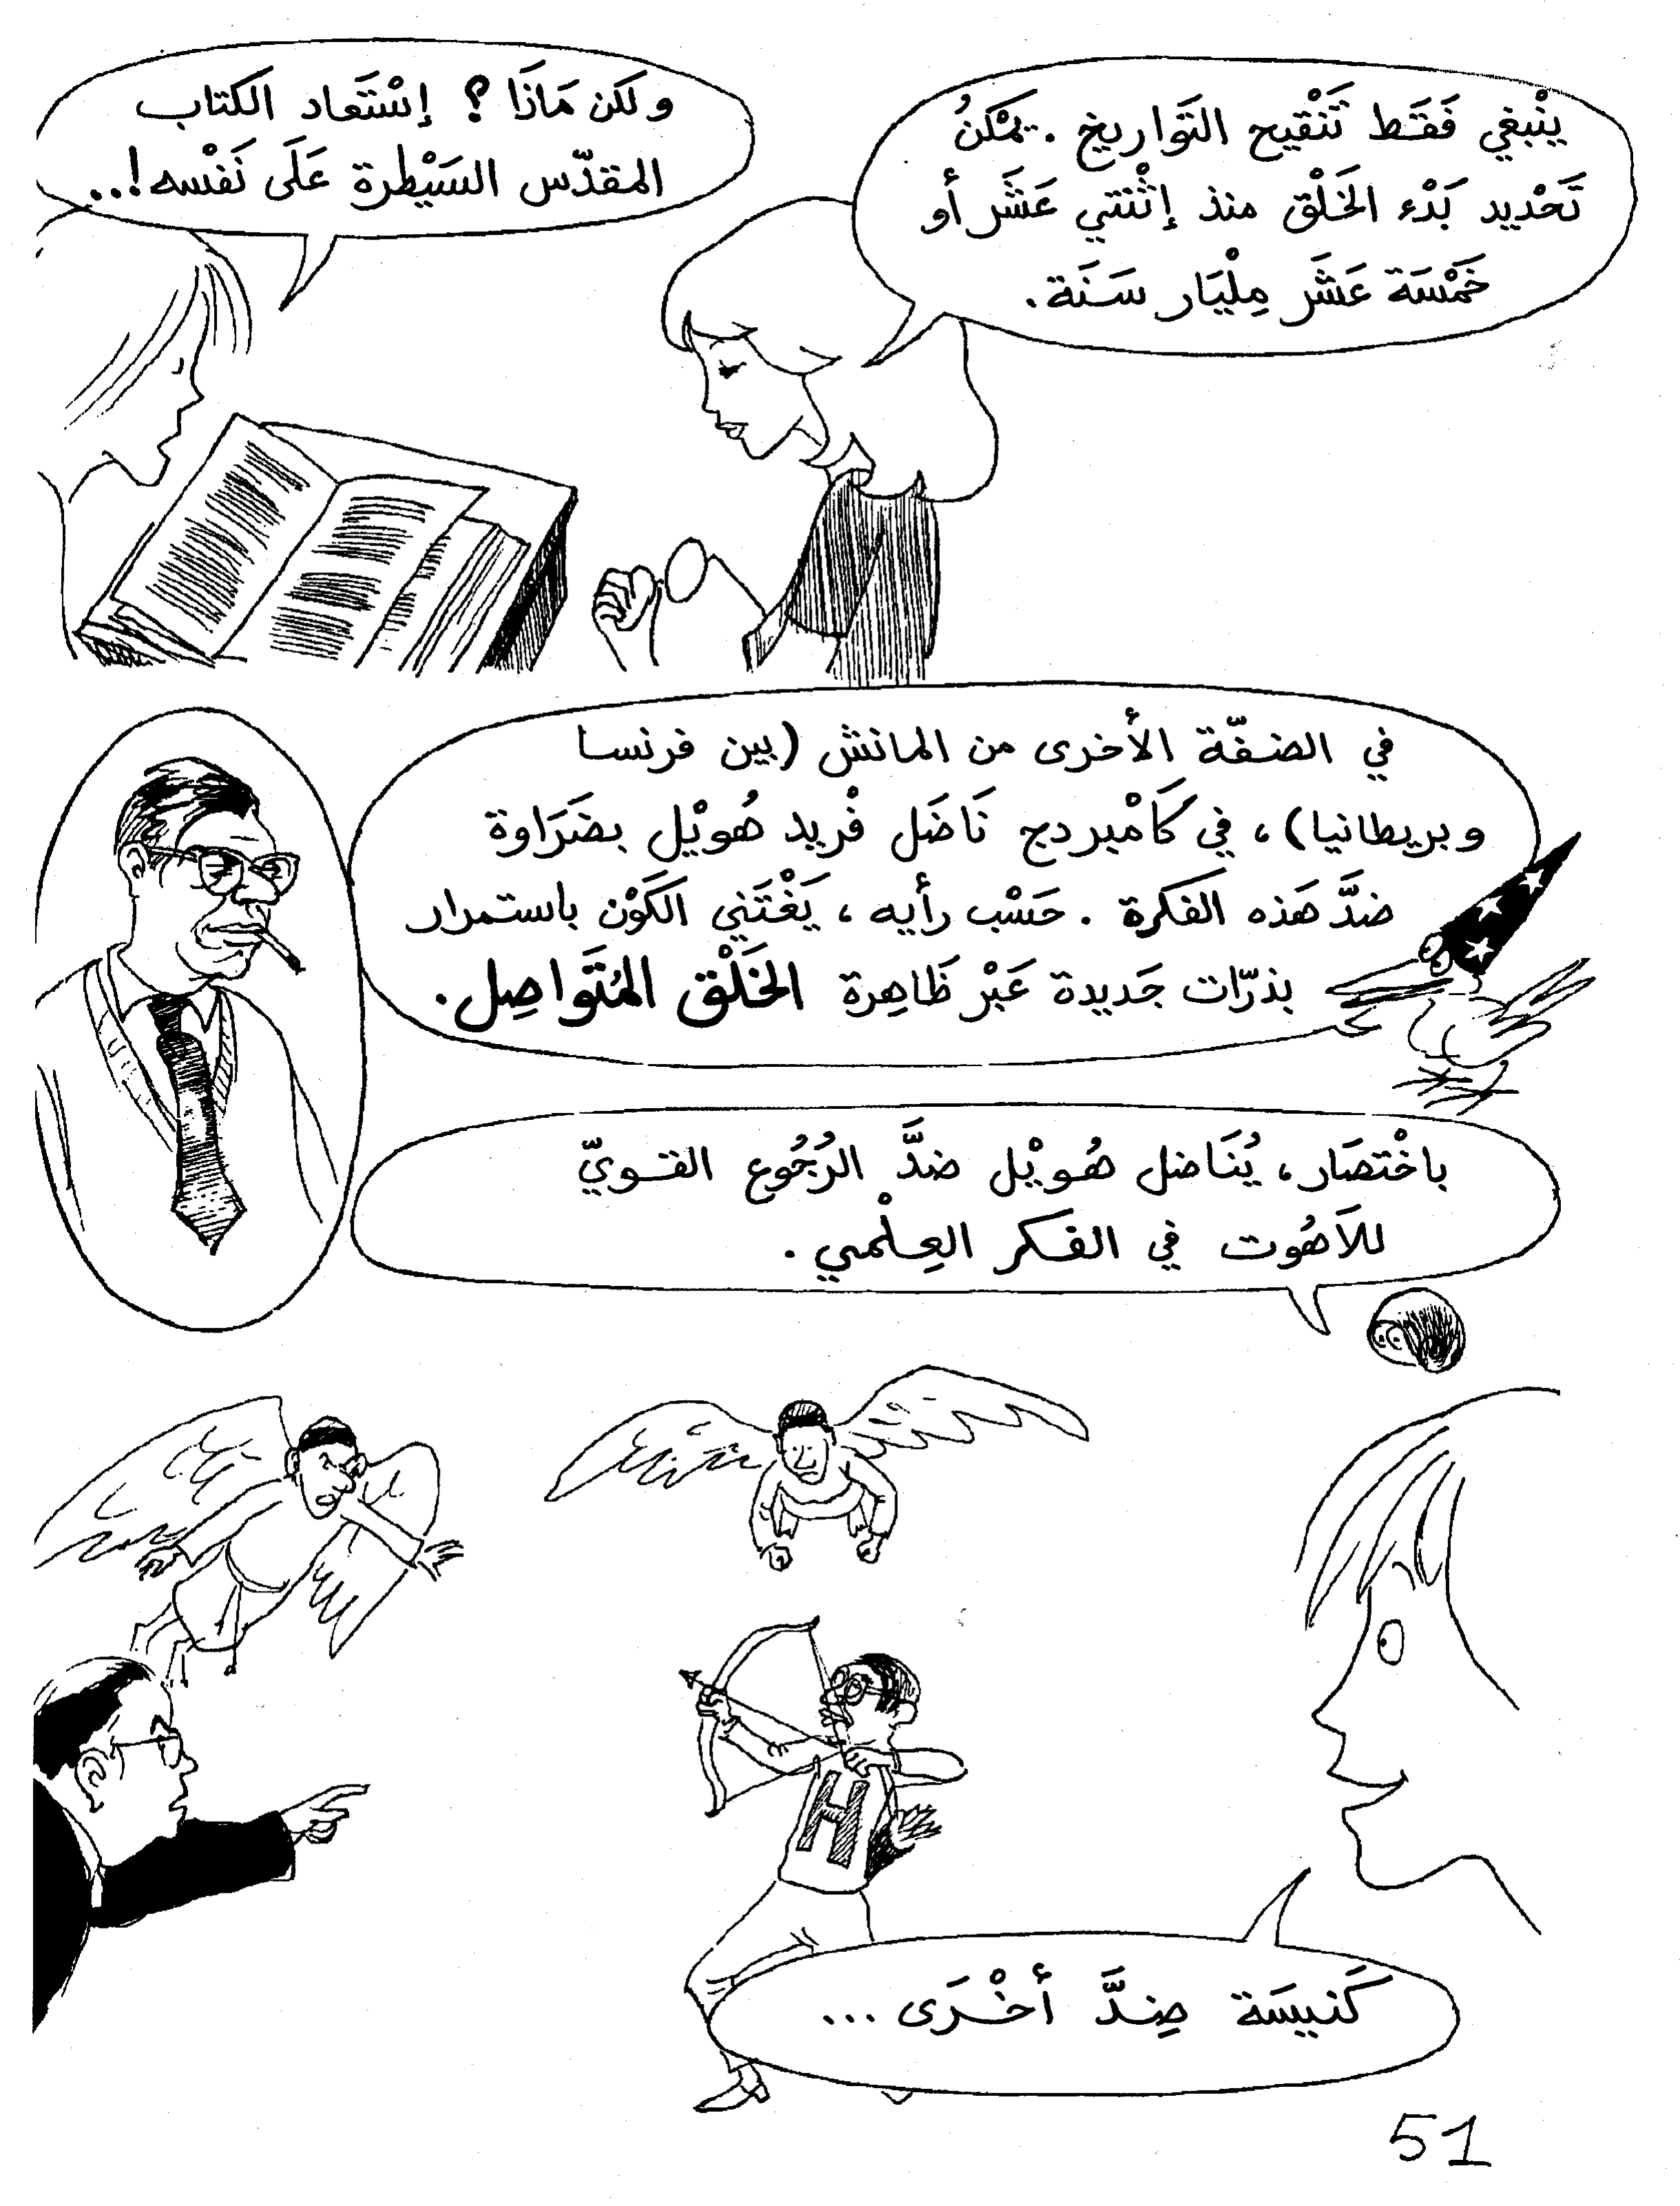 ينْبغي فَقَط تَنْقيح التَواريخ . يمْكنُ
تَحْديد بَدْء الخَلْق منذ إثْنتي عَشَر أو
خَمْسَة عَشَر مِلْيَار سَنَة.
ولكن مَاذَا ؟ إسْتَعاد الكتاب
المقدّس السَيْطرة عَلَى نَفْسه !..
في الضفّة الأخرى من المانش (بين فرنسا
وبريطانيا) ، في كَامْبردج نَاضَل فْريد هُويْل بضَرَاوة
ضدَّ هَذه الفكرة . حَسْب رأيه ، يَغْتَني الكَوْن باستمرار
بذرّات جَديدة عَبْر ظَاهِرة الخَلْق المُتَواصِل .
باخْتصَار ، يُنَاضل هُويْل ضدَّ الرُجُوع القويّ
للاَهُوت في الفكر العِلْمي .
كَنيسَة ضِدَّ أخْرَى ...
51